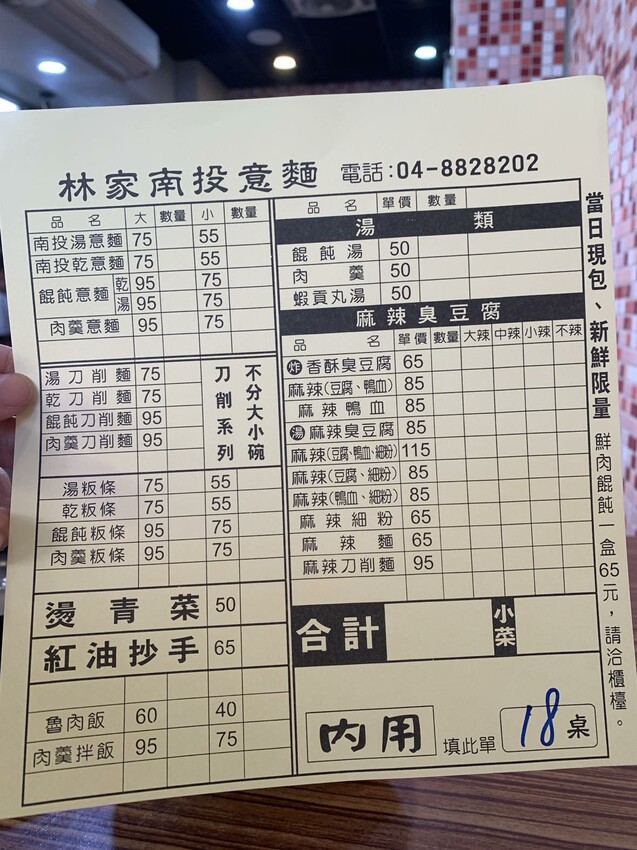 林家南投意麵 電話:04-8828202
品名 大 數量 小 數量
南投湯意麵 75 55
南投乾意麵 75 55
餛飩意麵 乾 95 75
湯 95 75
肉羹意麵 95 75
湯刀削麵 75
乾刀削麵 75
餛飩刀削麵 95
肉羹刀削麵 95
刀削系列
不分大小碗
湯粄條 75 55
乾粄條 75 55
餛飩粄條 95 75
肉羹粄條 95 75
燙青菜 50
紅油抄手 65
魯肉飯 60 40
肉羹拌飯 95 75
品名 單價 數量
湯類
餛飩湯 50
肉羹 50
蝦貢丸湯 50
麻辣臭豆腐
品名 單價 數量 大辣 中辣 小辣 不辣
炸 香酥臭豆腐 65
麻辣(豆腐、鴨血) 85
麻辣鴨血 85
湯 麻辣臭豆腐 85
麻辣(豆腐、鴨血、細粉) 115
麻辣(豆腐、細粉) 85
麻辣(鴨血、細粉) 85
麻辣細粉 65
麻辣麵 65
麻辣刀削麵 95
合計 小菜
內用 填此單 18 桌
當日現包、新鮮限量 鮮肉餛飩一盒65元,請洽櫃檯。